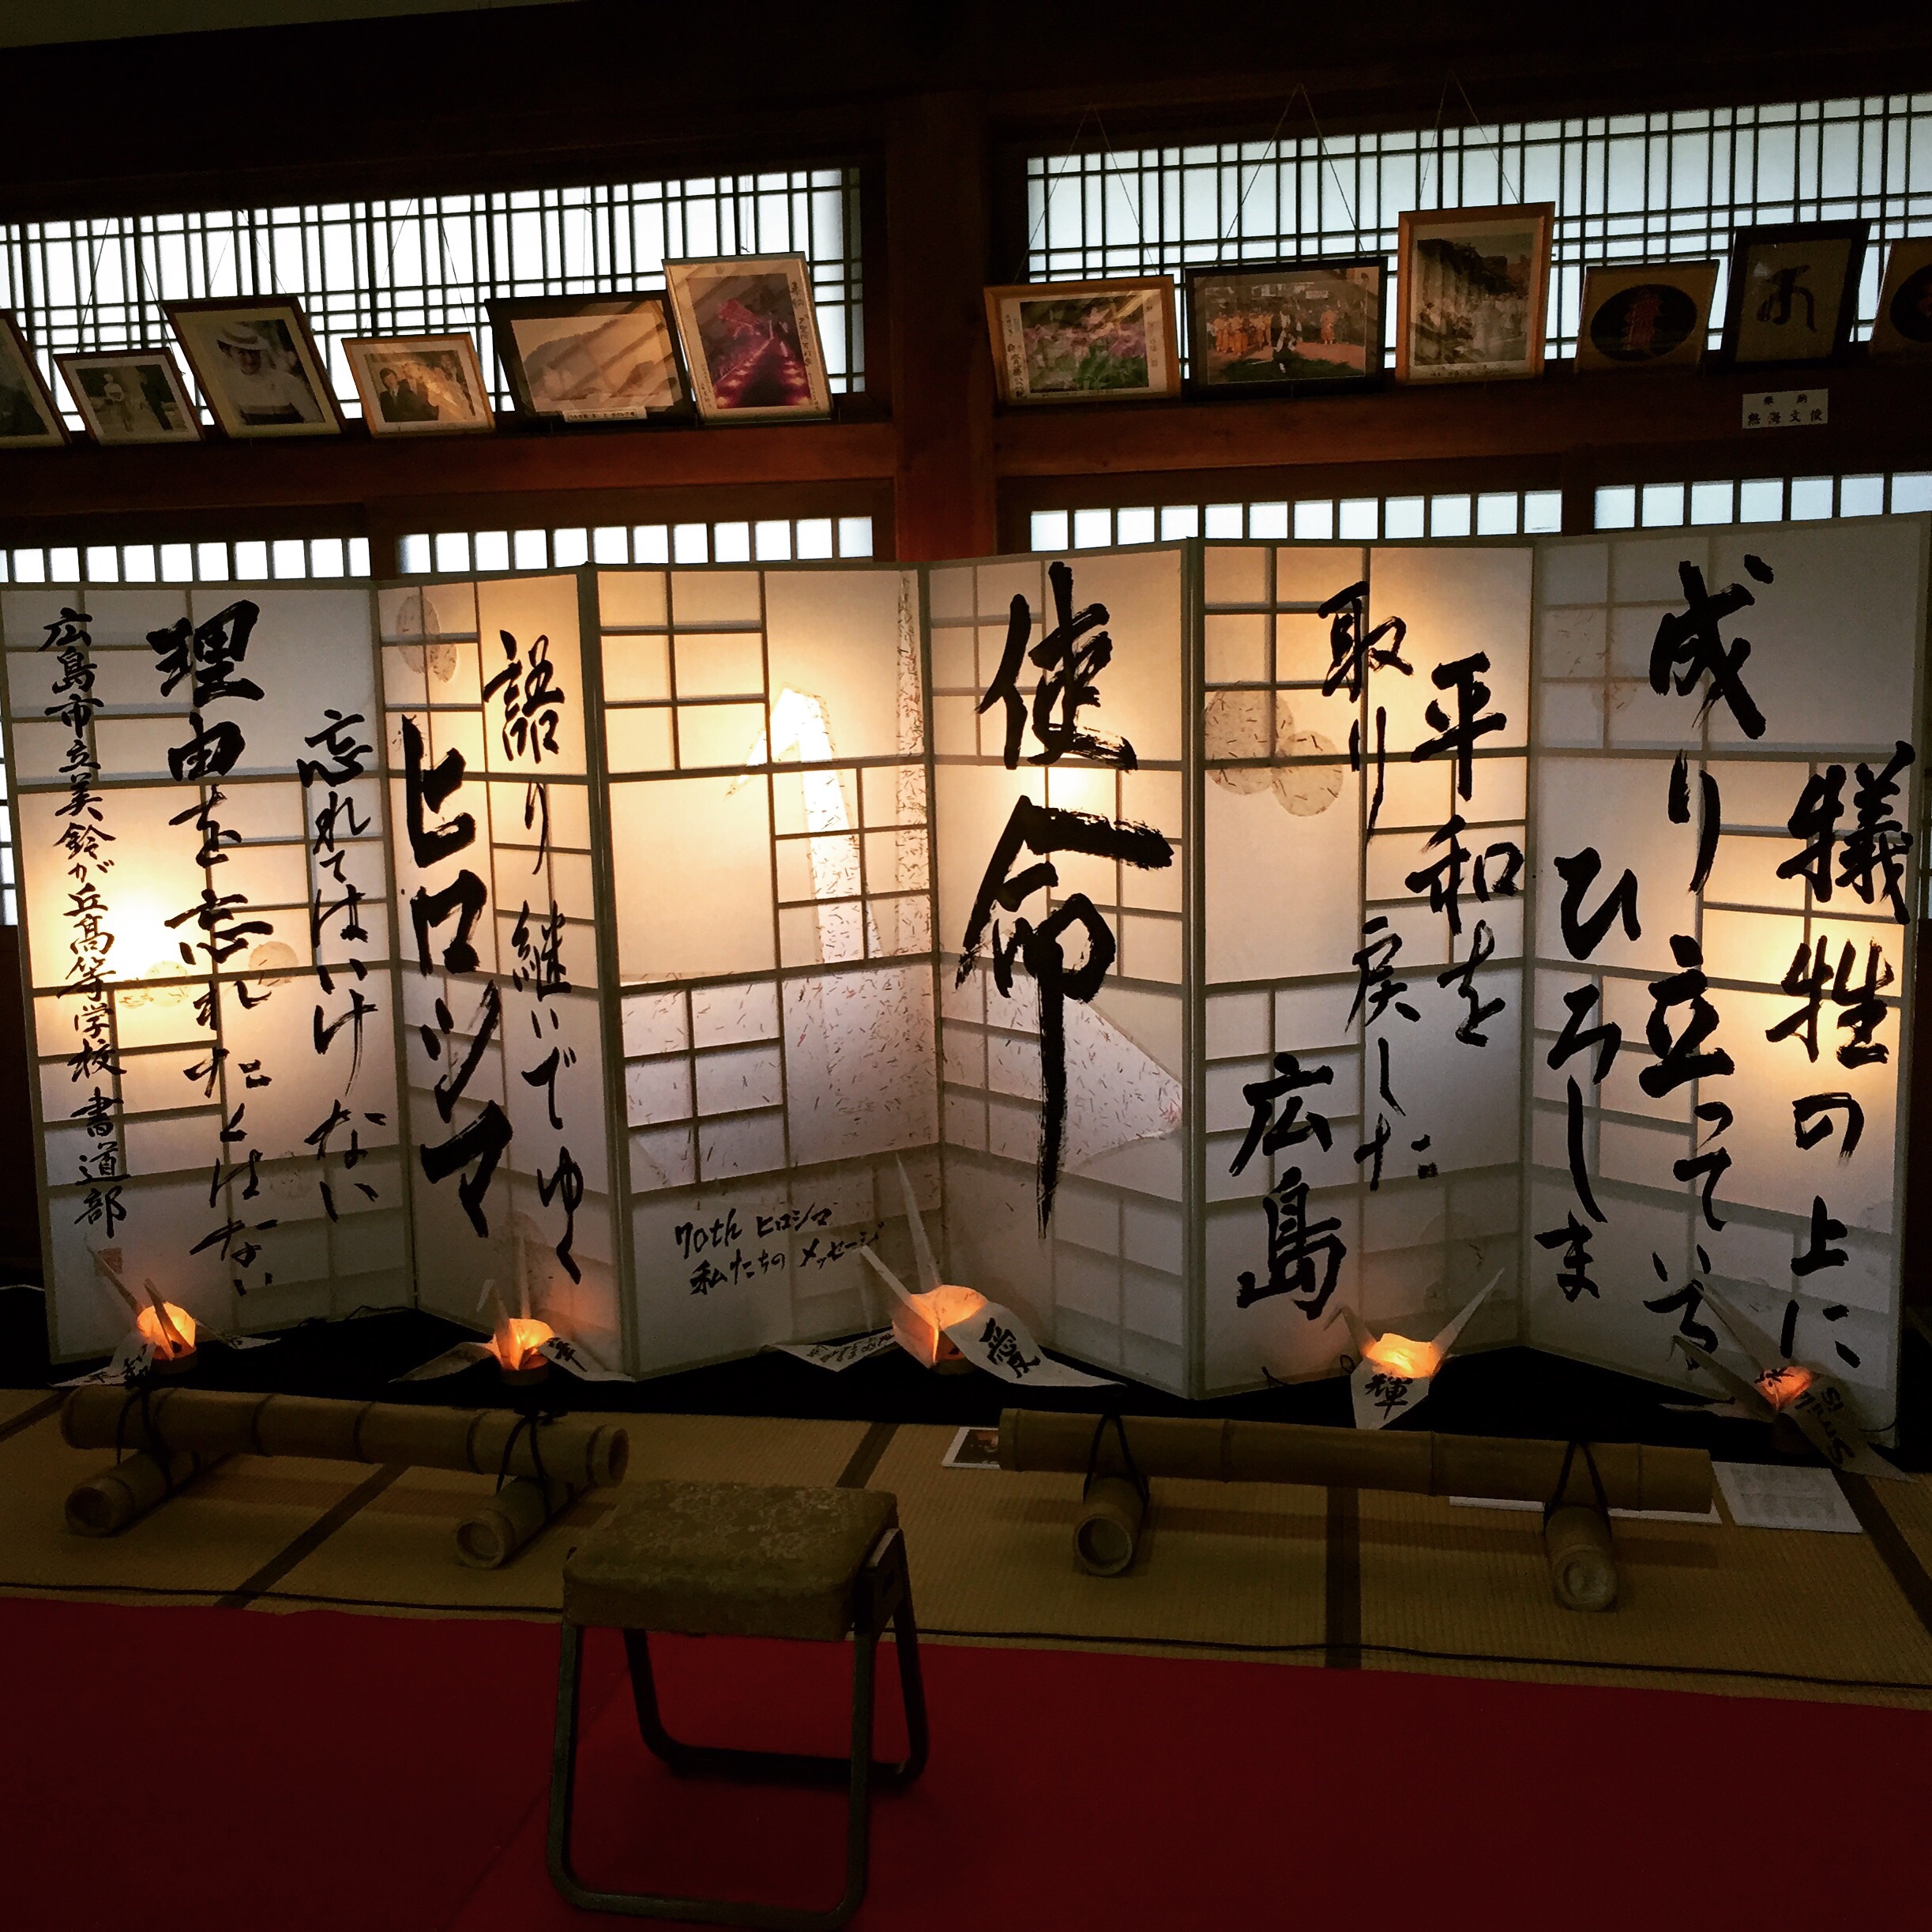 犠牲の上に
成り立っている
ひろしま
平和を
取り戻した
広島
使命
70th ヒロシマ
私たちの メッセージ
語り継いでゆく
ヒロシマ
忘れてはいけない
理由を忘れたくはない
広島市立美鈴が丘高等学校 書道部
愛
輝
奉納
熱海文俊